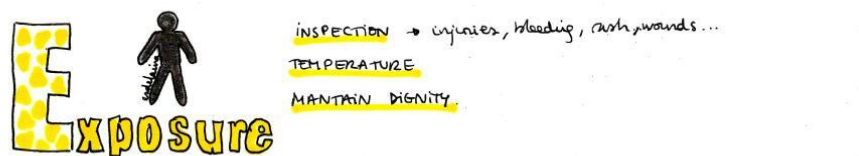 Exposure
INSPECTION → injuries, bleeding, rash, wounds...
TEMPERATURE
MANTAIN DIGNITY.